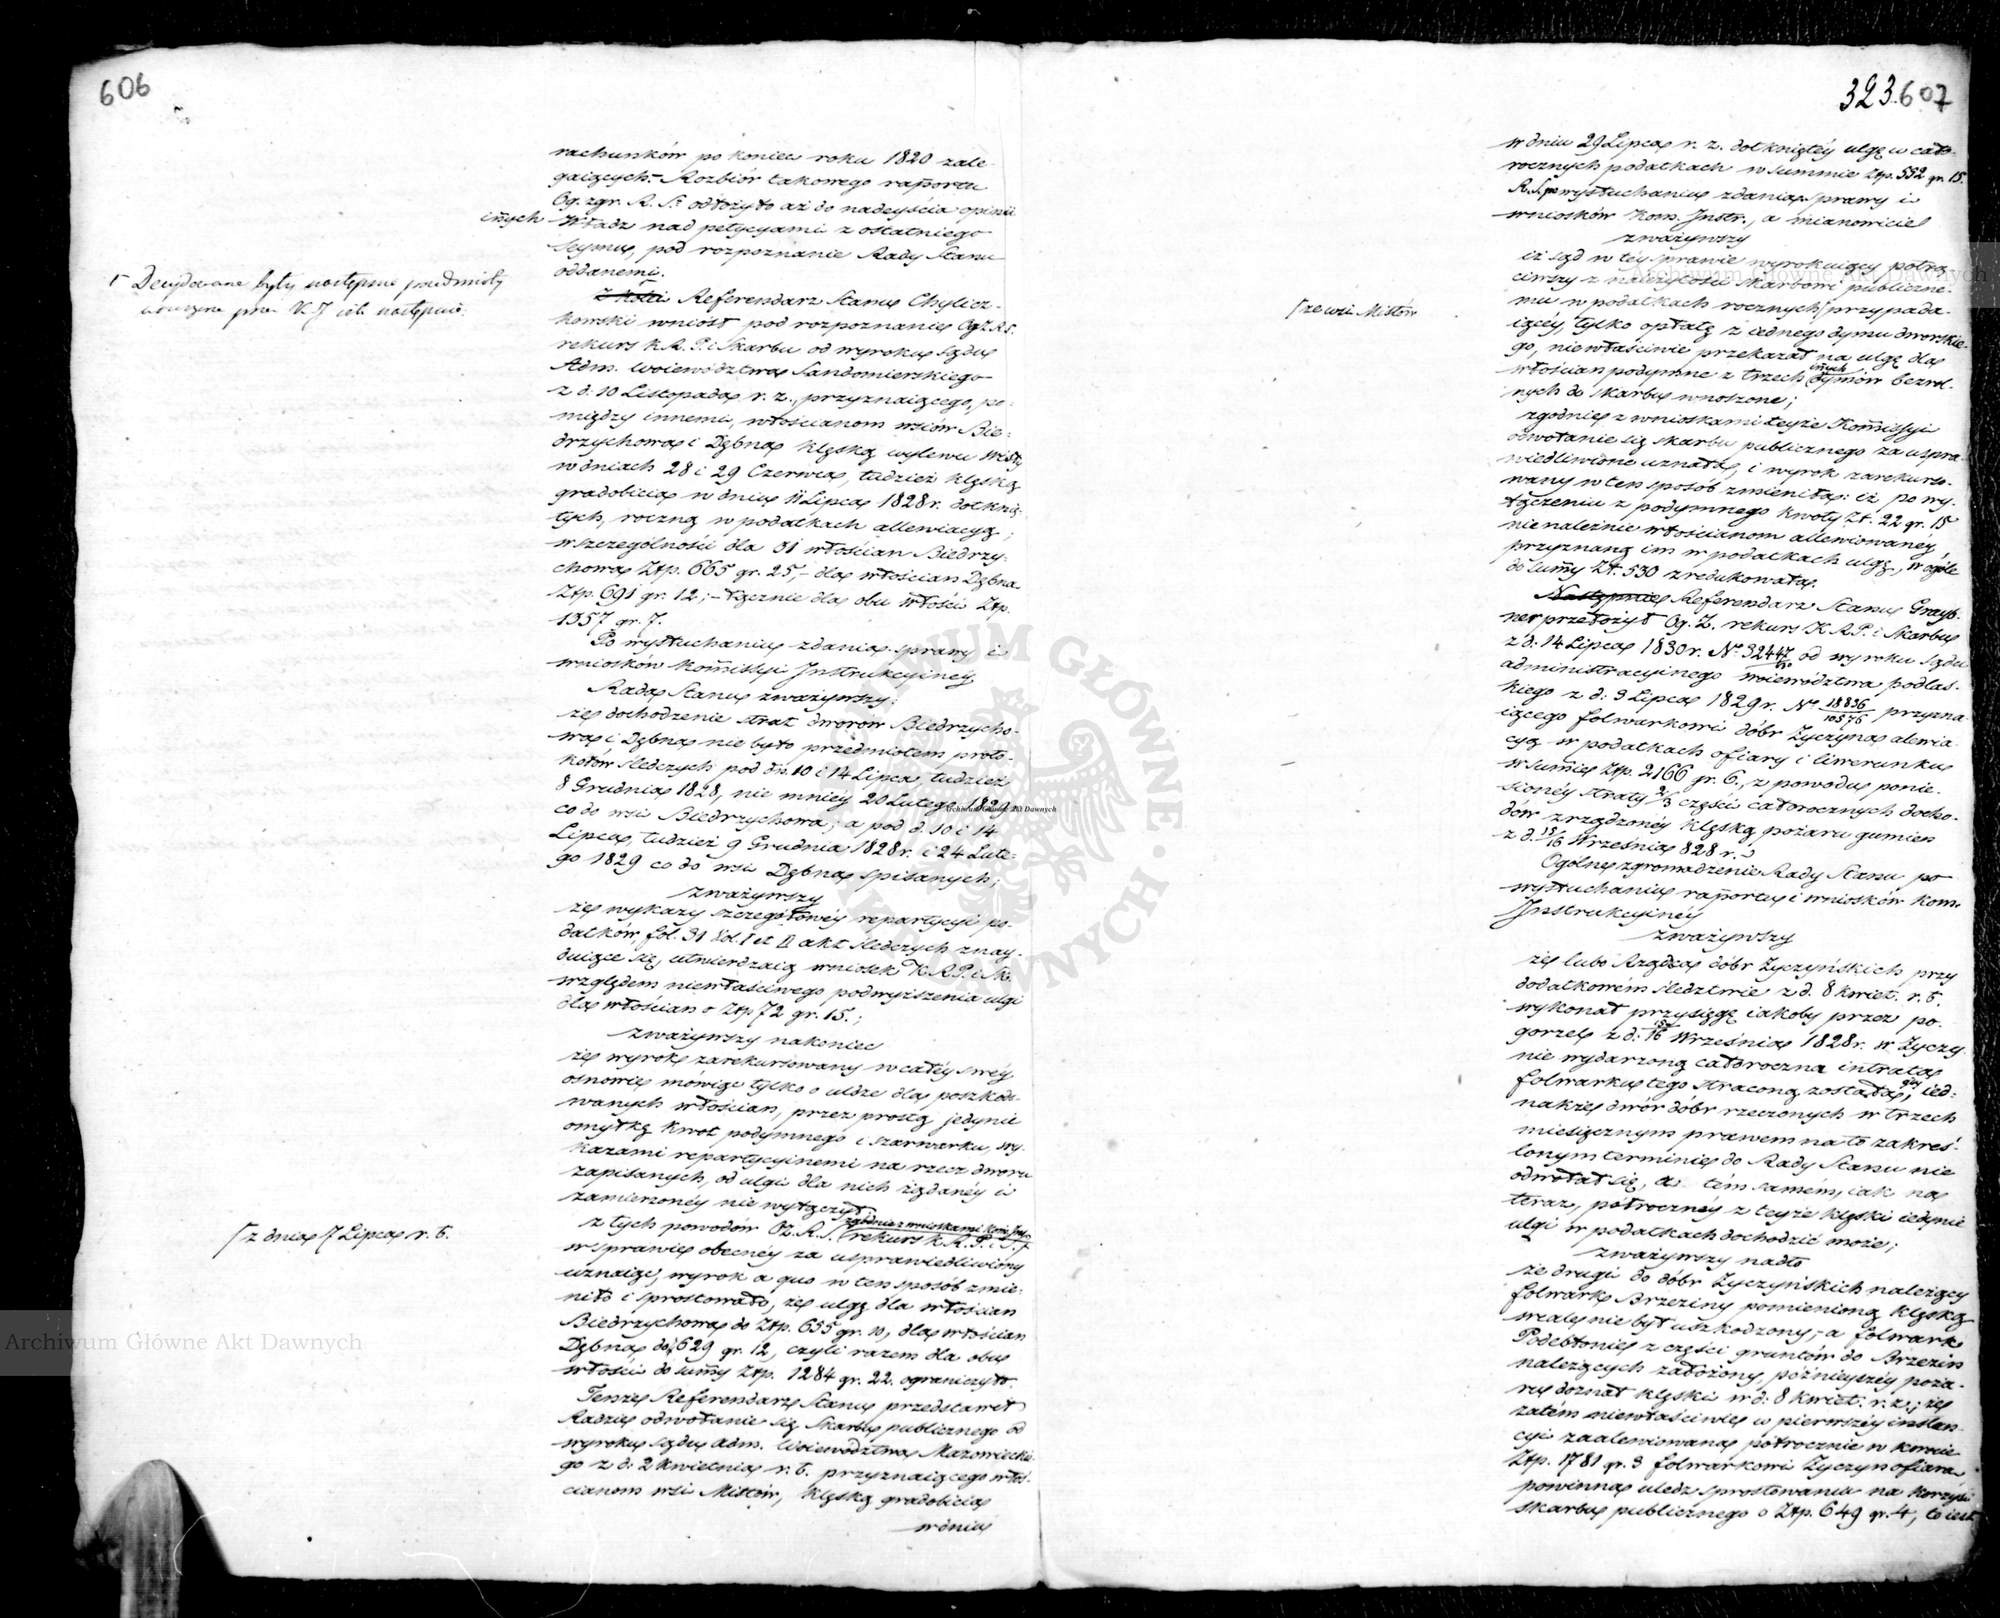 606
rachunków po koniec roku 1820 zale-
gaiących.- Rozbiór takowego rapportu
Og. zgr. R. St. odłożyło aż do nadeyścia opinii
innych Władz nad petycyami z ostatniego
Seymu, pod rozpoznanie Rady Stanu
oddanemi.
Decydowane były następne przedmioty
Z kolei Referendarz Stanu Chylicz-
kowski wniósł pod rozpoznanie Og. Z. R. S.
rekurs K. R. P. i Skarbu od wyroku Sądu
Adm. Woiewództwa Sandomierskiego
z d: 10 Listopada r. z., przyznaiącego, po-
między innemi, włościanom wsiów Bie-
drzychowa i Dębna klęską wylewu Wisły
w dniach 28 i 29 Czerwca, tudzież klęską
gradobicia w dniu 11 Lipca 1828 r. dotknię-
tych, roczną w podatkach allewiacyą;
w szczególności dla 31 włościan Biedrzy-
chowa Złp. 665 gr. 25,- dla włościan Dębna
Złp. 691 gr. 12;- łącznie dla obu włości Złp.
1357 gr. 7.
Po wysłuchaniu zdania sprawy i
wniosków Kommissyi Instrukcyiney
Rada Stanu zważywszy:
że dochodzenie strat dworów Biedrzycho-
wa i Dębna nie było przedmiotem proto-
kołów śledczych pod dn. 10 i 14 Lipca, tudzież
8 Grudnia 1828, nie mniey 20 Lutego 1829
co do wsi Biedrzychowa; a pod d. 10 i 14
Lipca, tudzież 9 Grudnia 1828 r. i 24 Lute-
go 1829 co do wsi Dębna spisanych;
zważywszy
że wykazy szczegółowéy repartycyi po-
datków fol. 31 Vol. I et II akt śledczych znay-
duiące się, utwierdzaią wniosek K. R. P. i Sk.
względem niewłaściwego podwyższenia ulgi
dla włościan o Złp 72 gr. 15.;
zważywszy nakoniec
że wyrok zarekursowany w całéy swéy
osnowie mówiąc tylko o uldze dla poszkodo-
wanych włościan, przez prostą jedynie
omyłkę kwot podymnego i szarwarku, wy-
kazami repartycyinemi na rzecz dworu
zapisanych, od ulgi dla nich żądanéy i
zamierzonéy nie wyłączył.
zgodnie z wnioskami Kom. Instr.
z tych powodów Oz. R. S. rekurs K. R. P. i S.
z dnia 7 Lipca r. b.
w sprawie obecnéy za usprawiedliwiony
uznaiąc, wyrok a quo w ten sposób zmie-
niło i sprostowało, że ulgę dla włościan
Biedrzychowa do Złp. 655 gr. 10, dla włościan
Dębna do 629 gr. 12, czyli razem dla obu
włości do summy Złp. 1284 gr. 22. ograniczyło.
Tenże Referendarz Stanu przedstawił
Radzie odwołanie się Skarbu publicznego od
wyroku Sądu Adm. Woiewództwa Mazowieckie-
go z d: 2 Kwietnia r. b. przyznaiącego włoś-
cianom wsi Mistów, klęską gradobicia
w dniu
323. 607
w dniu 29 Lipca r. z. dotkniętéy ulgę w cało-
rocznych podatkach w summie Złp. 552 gr. 15.
R. S. po wysłuchaniu zdania sprawy i
wniosków Kom. Instr., a mianowicie
zważywszy
iż sąd w tey sprawie wyrokuiący potrą-
ciwszy z należytości Skarbowi publiczne-
mu w podatkach rocznych przypada-
ze wsi Mistów
iącéy, tylko opłatę z iednego dymu dworskie-
go, niewłaściwie przekazał na ulgę dla
włościan podymne z trzech innych dymów bezrol-
nych do Skarbu wnoszone;
zgodnie z wnioskami teyże Kommissyi
odwołanie się Skarbu publicznego za uspra-
wiedliwione uznała, i wyrok zarekurso-
wany w ten sposób zmieniła: iż po wy-
łączeniu z podymnego kwoty Zł. 22 gr. 15
nienależnie włościanom allewiowanéy,
przyznaną im w podatkach ulgę, w ogóle
do summy Zł. 530 zredukowała.
Następnie Referendarz Stanu Grayb-
ner przełożył Og. Z. rekurs K. R. P. i Skarbu
z d: 14 Lipca 1830 r. No. od wyroku Sądu
administracyinego Woiewództwa podlas-
kiego z d: 3 Lipca 1829 r. No. 18836/10576 przyzna-
iącego folwarkowi dóbr Życzyna alewia-
cyą w podatkach ofiary i liwerunku
w summie Złp. 2166 gr. 6, z powodu ponie-
sionéy straty 2/3 części całorocznych docho-
dów zrządzonéy klęską pożaru gumien
z d. 15/16 Września 828 r.
Ogólne zgromadzenie Rady Stanu po
wysłuchaniu rapportu i wniosków Kom.
Instrukcyinéy
zważywszy
że lubo Rządca dóbr Życzyńskich przy
dodatkowem śledztwie z d. 8 Kwiet. r. b.
wykonał przysięgę iakoby przez po-
gorzel z d: 15/16 Września 1828 r. w Życzy-
nie wydarzoną całoroczna intrata
folwarku tego straconą została; gdy ied-
nakże dwór dóbr rzeczonych w trzech
miesięcznym prawem na to zakreś-
lonym terminie do Rady Stanu nie
odwołał się, a tém samém, iak na
teraz, półrocznéy z teyże klęski iedynie
ulgi w podatkach dochodzić może;
zważywszy nadto
że drugi do dóbr Życzyńskich należący
folwark Brzeziny pomienioną klęską
wcale nie był uszkodzony,- a folwark
Podebłonie z części gruntów do Brzezin
należących założony, późnieyszéy poża-
ru doznał klęski w d: 8 Kwiet: r. z.; że
zatém niewłaściwie w pierwszéy instan-
cyi zaalewiowana półrocznie w kwocie
Złp. 1781 gr. 3 folwarkowi Życzyn ofiara
powinna uledz sprostowaniu na korzyść
Skarbu publicznego o Złp. 649 gr. 4, to iest
Archiwum Główne Akt Dawnych
Archiwum Główne Akt Dawnych
Archiwum Główne Akt Dawnych
ARCHIWUM GŁÓWNE AKT DAWNYCH